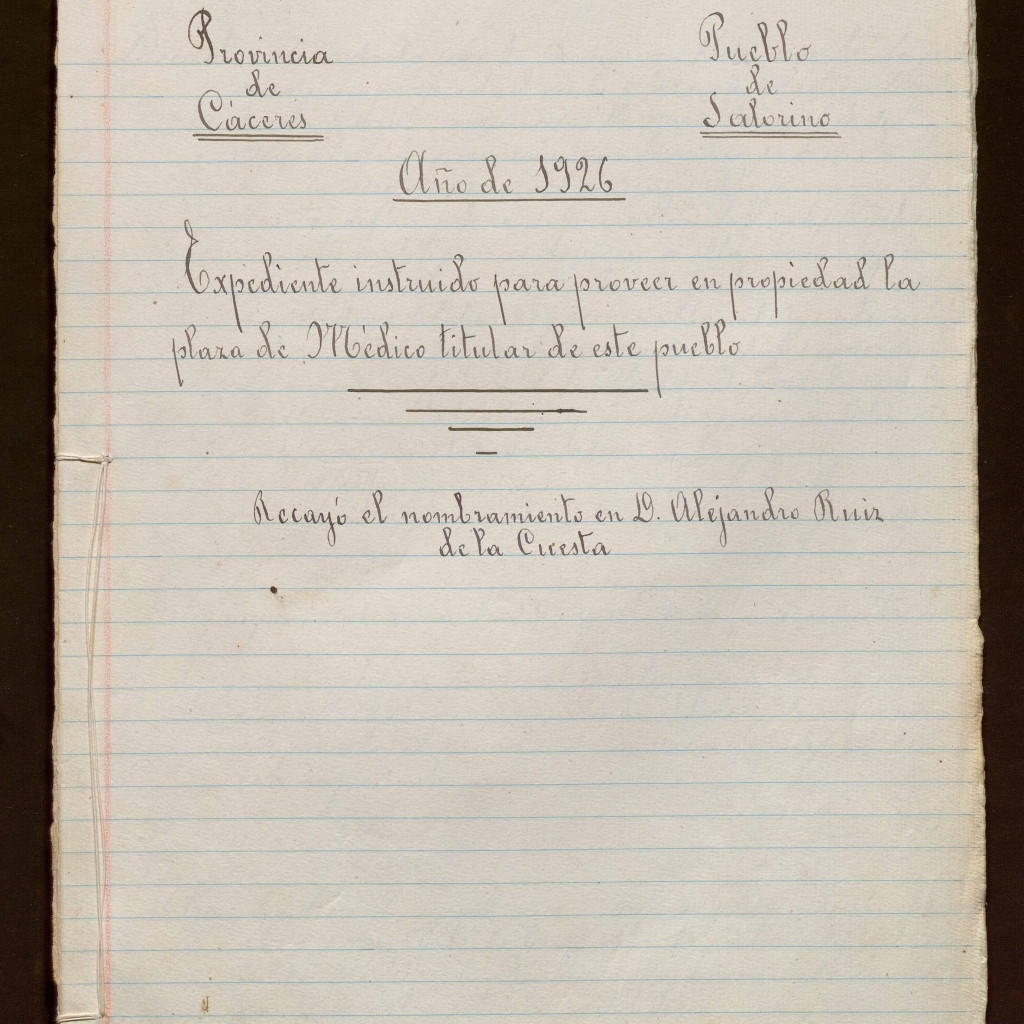 Provincia
de
Cáceres
Pueblo
de
Salorino
Año de 1926
Expediente instruido para proveer en propiedad la
plaza de Médico titular de este pueblo
Recayó el nombramiento en D. Alejandro Ruiz
de la Cuesta